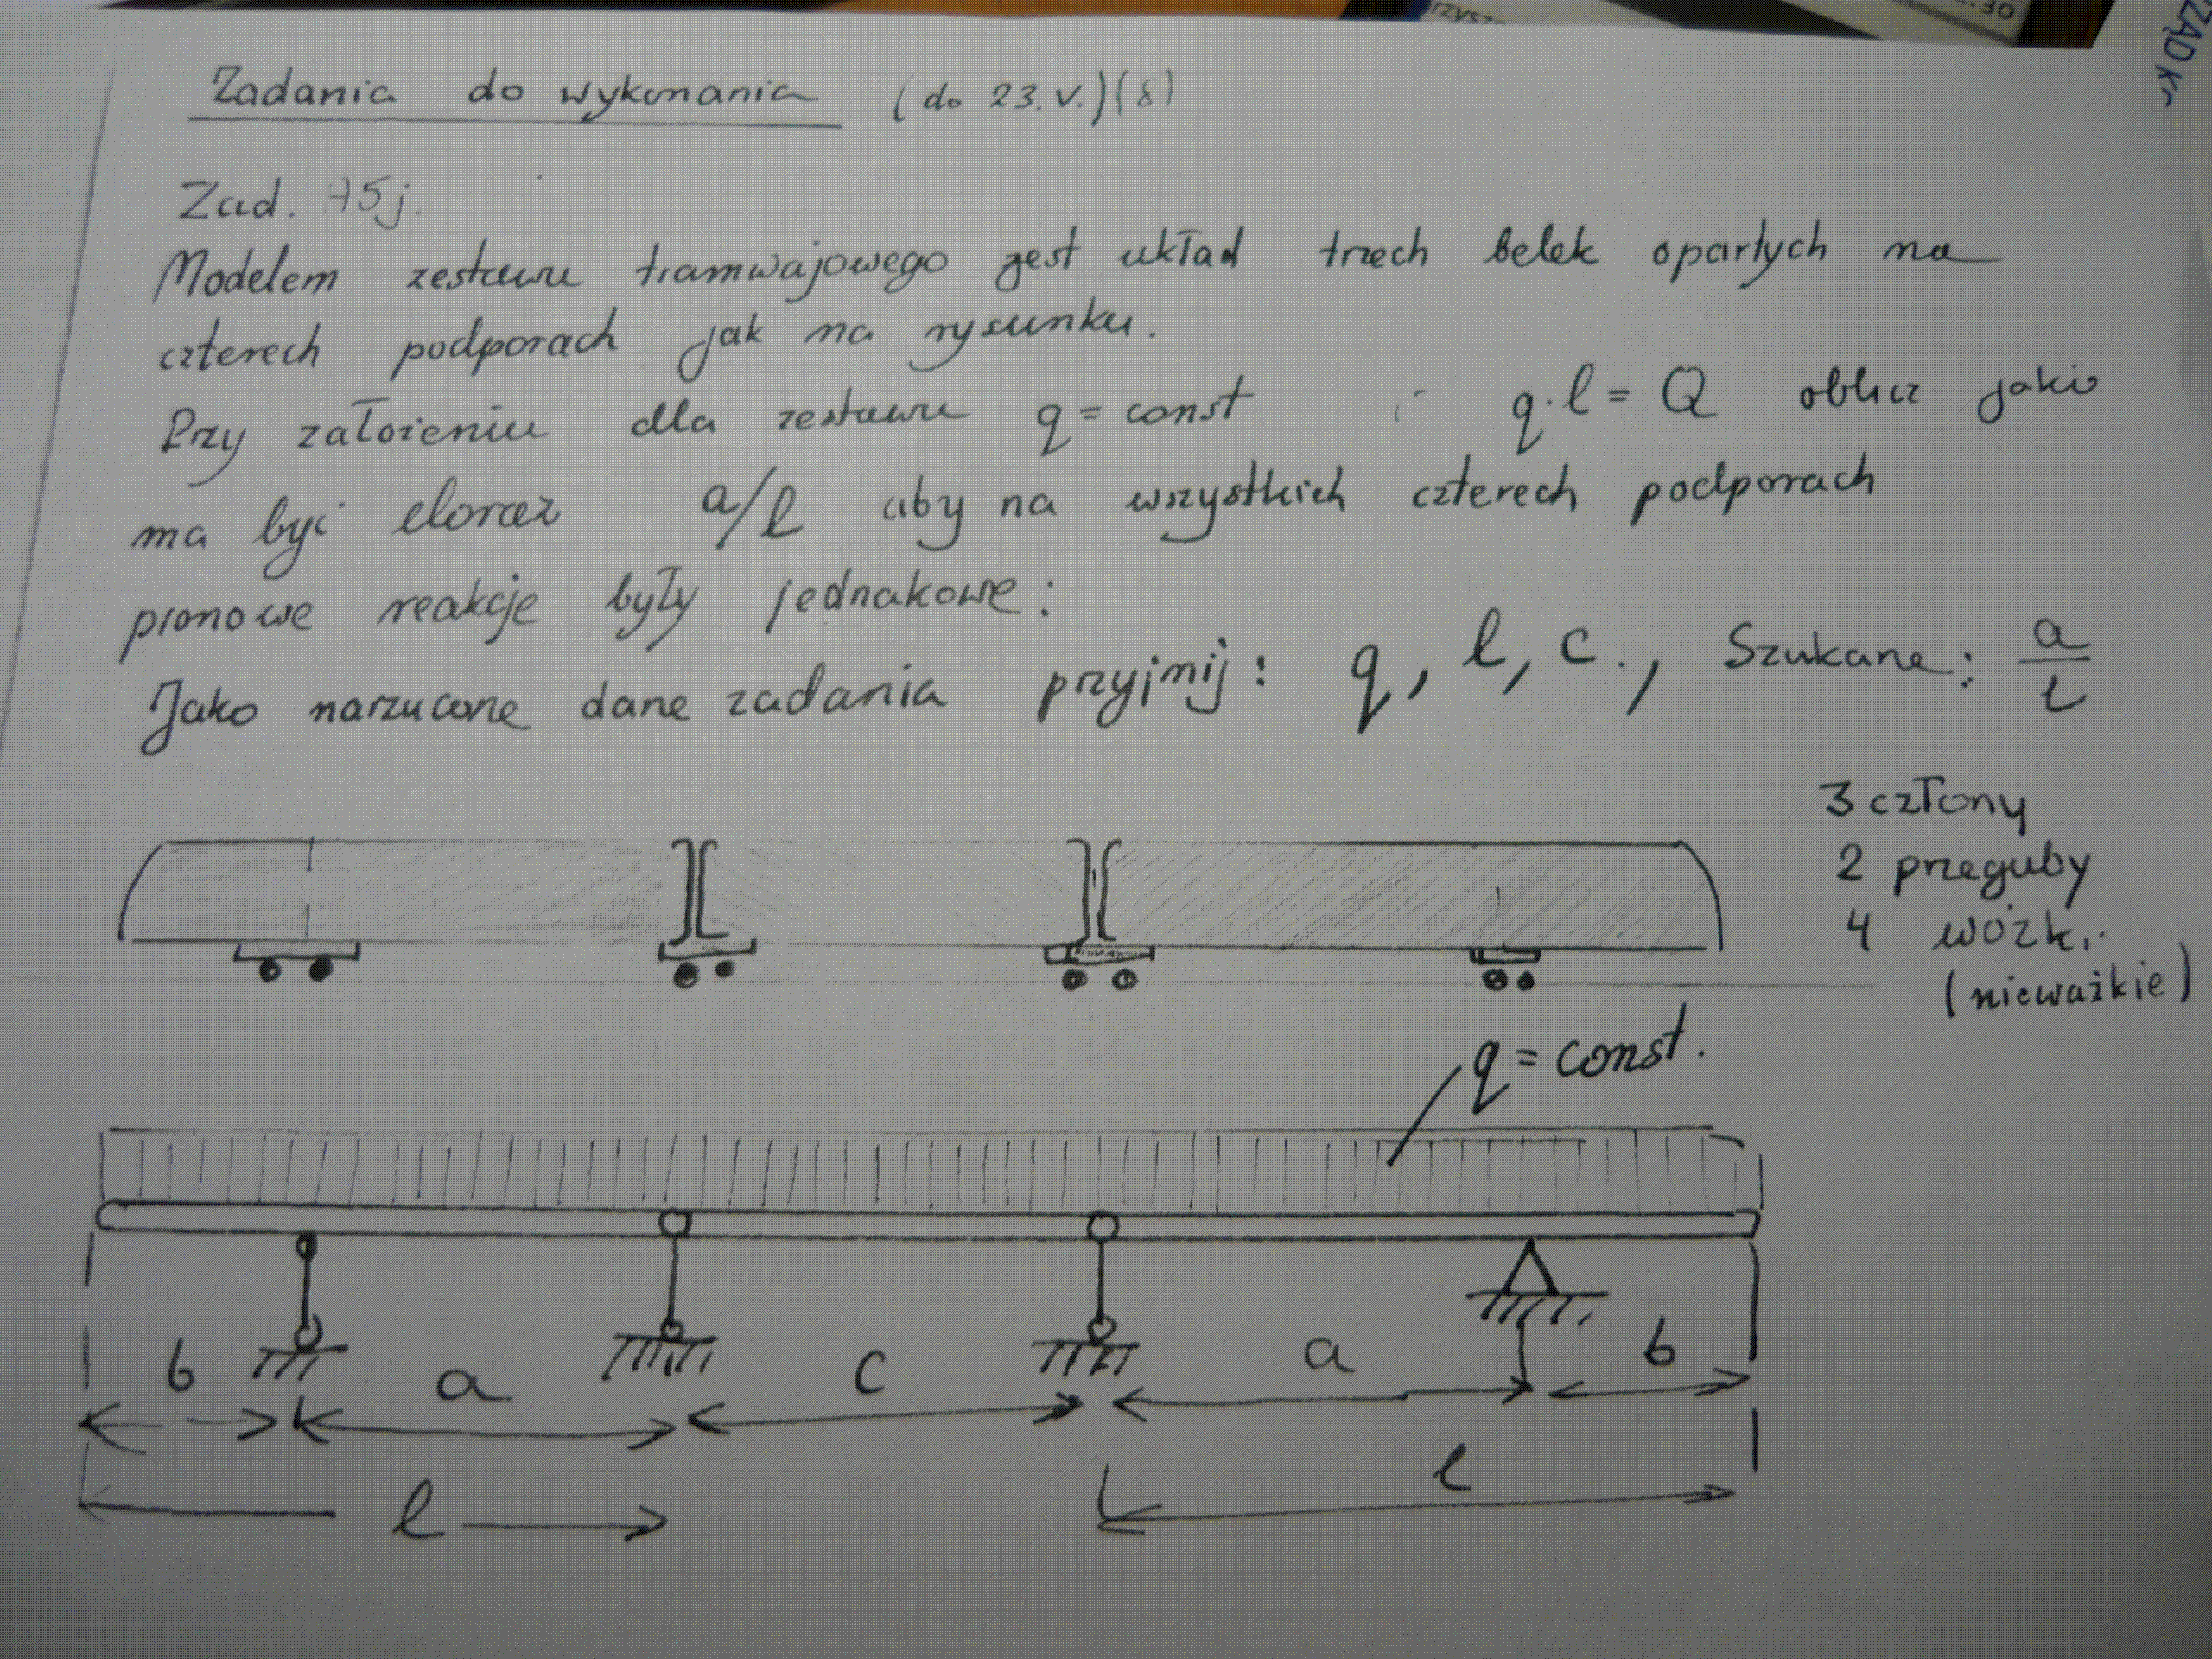 rzysz
.30
ZĄD Kr
Zadania do wykonania (do 23.V.)(8)
Zad. A5j.
Modelem zestawu tramwajowego jest układ trzech belek opartych na
czterech podporach jak na rysunku.
Przy założeniu dla zestawu q = const i q·l = Q oblicz jaki
ma być iloraz a/l aby na wszystkich czterech podporach
pionowe reakcje były jednakowe:
Jako narzucone dane zadania przyjmij: q, l, c., Szukane: a/l
3 człony
2 przeguby
4 wózki
(nieważkie)
q = const.
b a c a b
l l